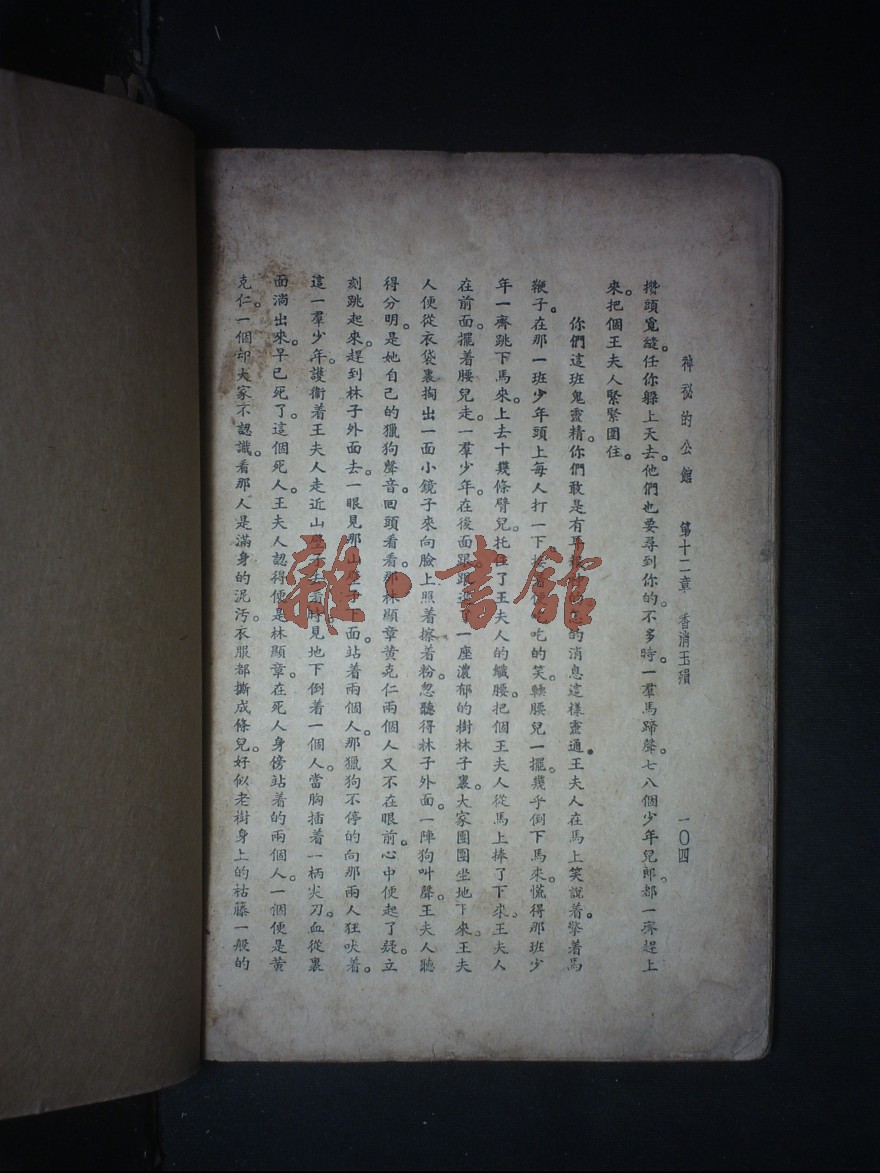 神祕的公館 第十二章 香消玉殞 一〇四
攢頭覓縫任你躲上天去。他們也要尋到你的。不多時。一羣馬蹄聲。七八個少年兒郎。都一齊趕上
來。把個王夫人緊緊圍住。
你們這班鬼靈精。你們敢是有耳的消息這樣靈通。王夫人在馬上笑說着。擎着馬
鞭子。在那一班少年頭上每人打一下。接着吃吃的笑。轃腰兒一擺。幾乎倒下馬來。慌得那班少
年一齊跳下馬來。上去十幾條臂兒。托住了王夫人的纖腰。把個王夫人從馬上捧了下來。王夫人
在前面。擺着腰兒走。一羣少年在後面跟。一座濃郁的樹林子裏。大家團團坐地下來。王夫
人便從衣袋裏掏出一面小鏡子來。向臉上照着擦着粉。忽聽得林子外面。一陣狗叫聲。王夫人聽
得分明。是她自己的獵狗聲音。回頭看看。那林顯章黃克仁兩個人又不在眼前。心中便起了疑。立
刻跳起來。趕到林子外面去。一眼見那山下面站着兩個人。那獵狗不停的向那兩人狂吠着。
這一羣少年。護衛着王夫人走近山看時。見地下倒着一個人。當胸插着一柄尖刀。血從裏
面淌出來。早已死了。這個死人。王夫人認得便是林顯章。在死人身傍站着的兩個人。一個便是黃
克仁。一個却大家不認識。看那人是滿身的泥汚。衣服都撕成條兒。好似老樹身上的祜藤一般的
雜·書館